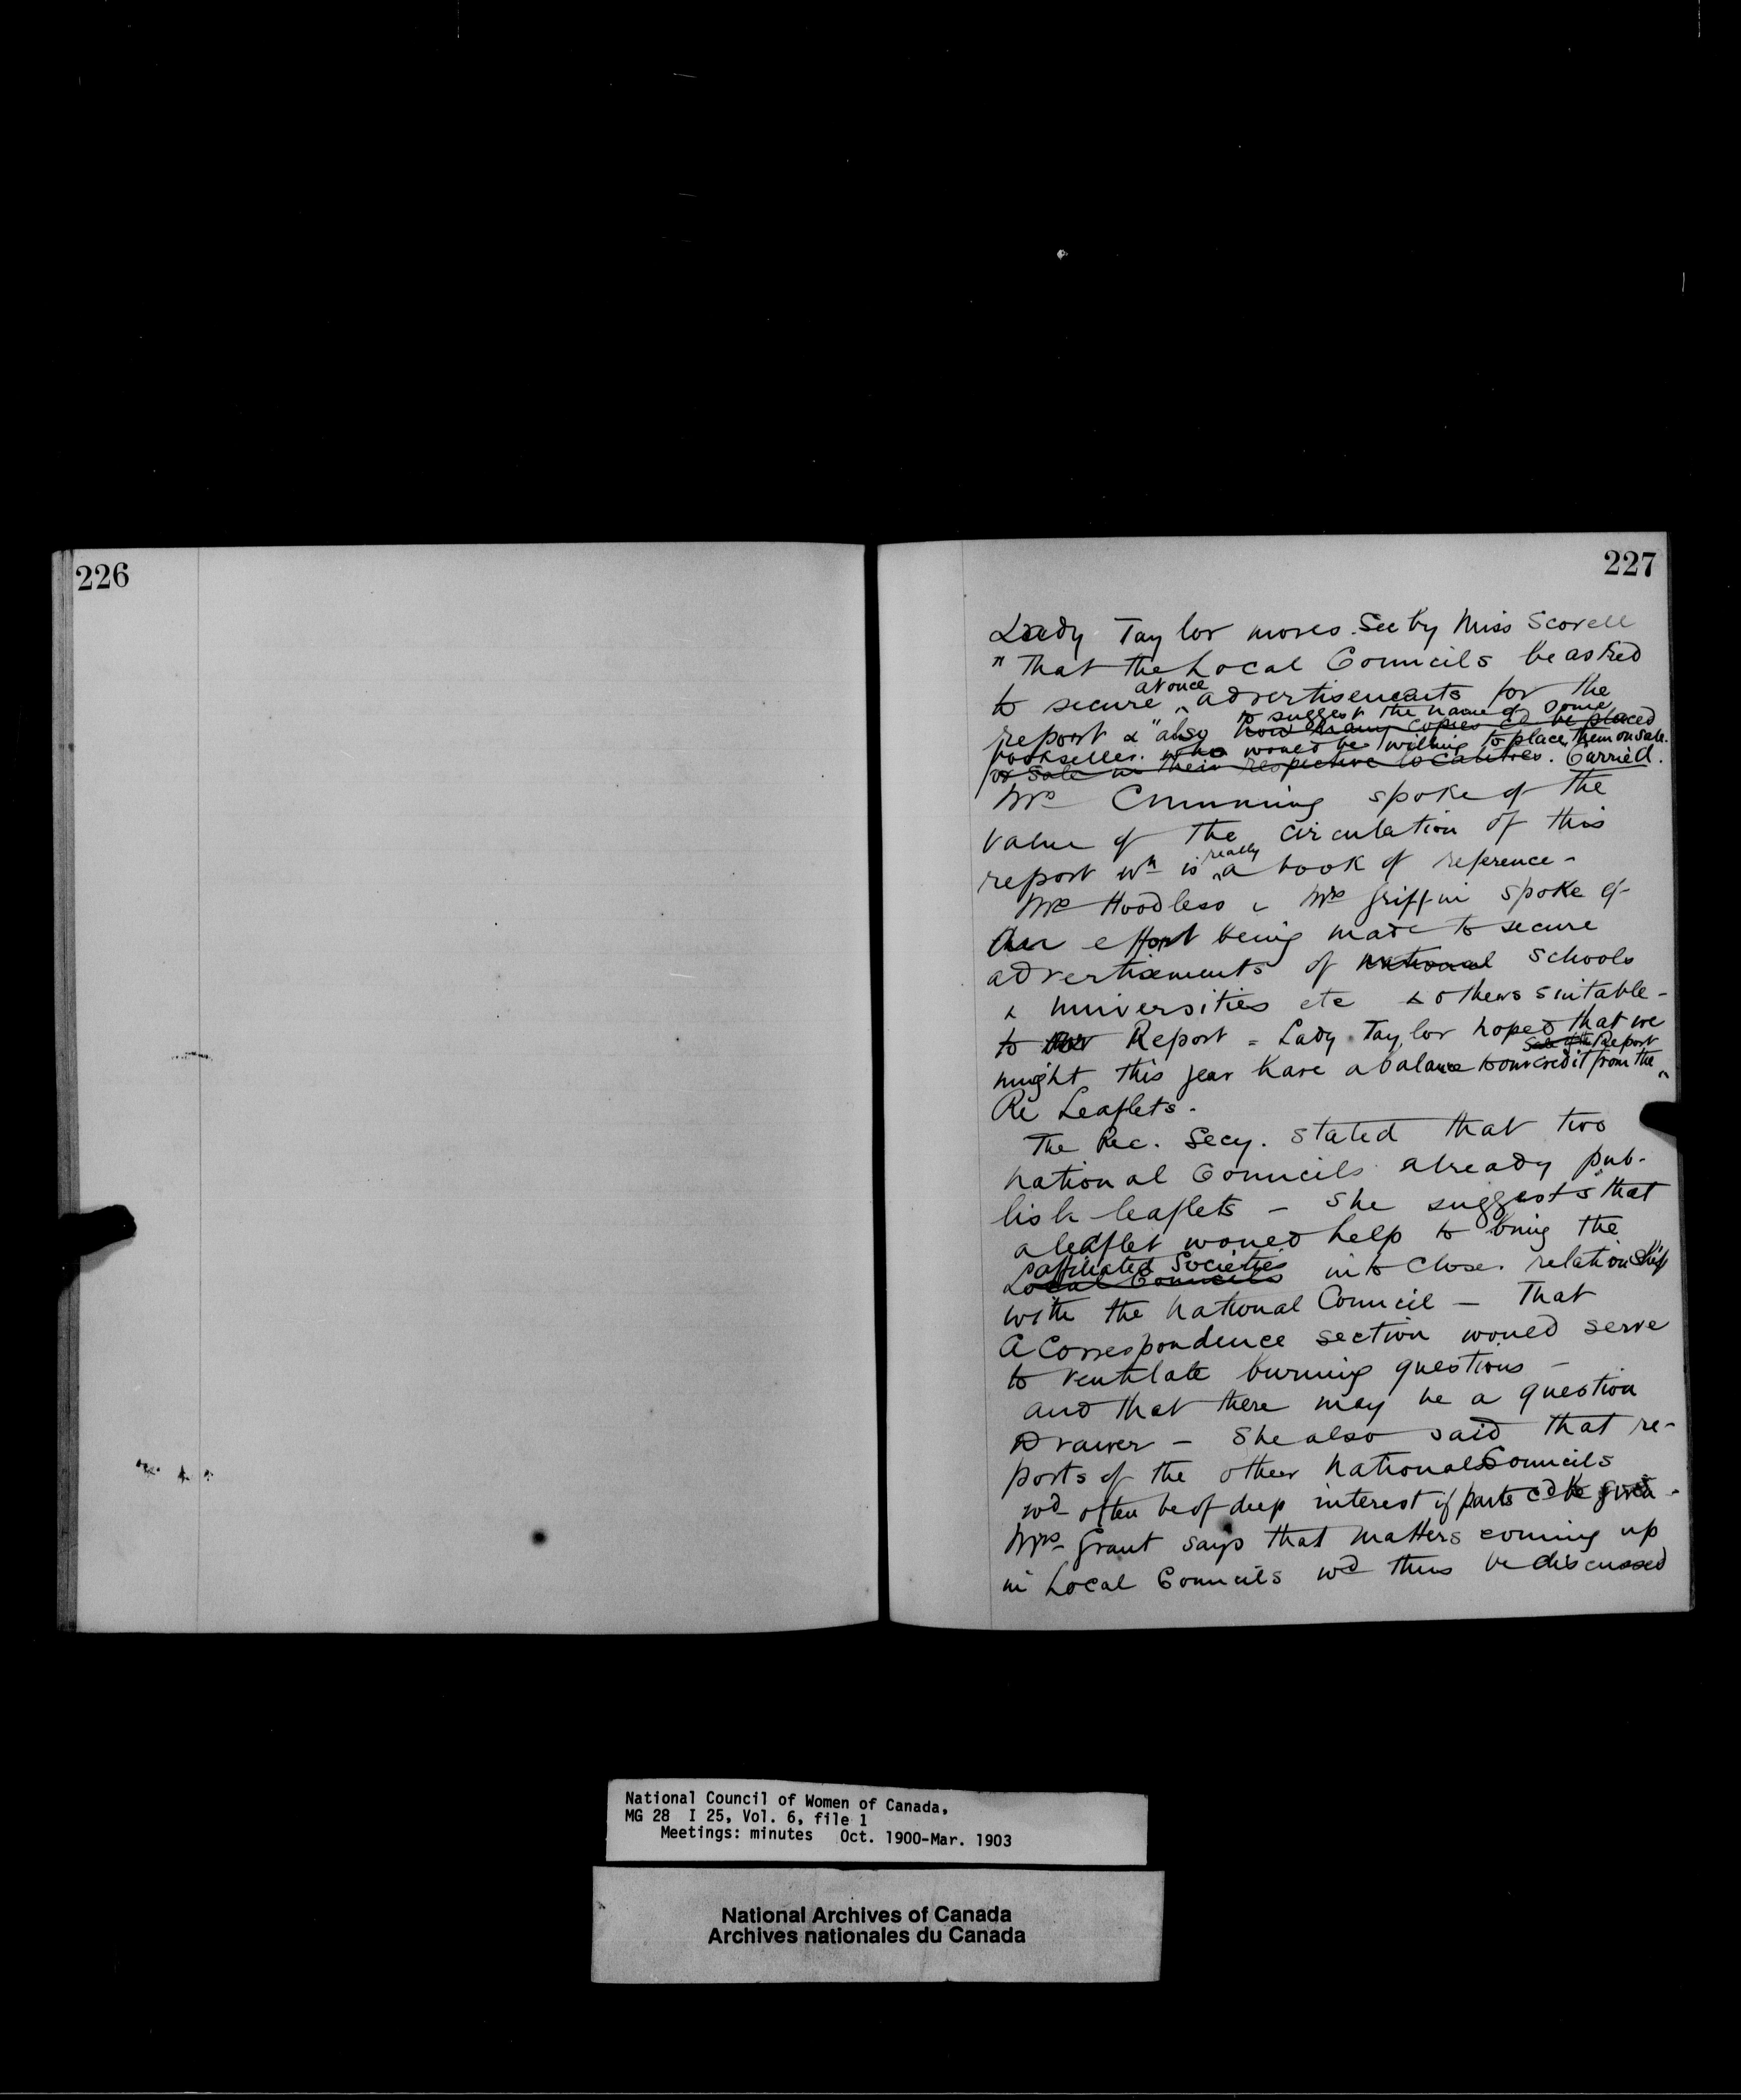 226
227
Lady Taylor moves. Sec by Miss Scovell
"That the Local Councils be asked
at once
to secure ^ advertisements for the
to suggest the name of some
report & "also how many copies cd be placed
bookseller who would be willing to place them on sale.
or sale in their respective localities. Carried.
Mrs Cumming spoke of the
value of the circulation of this
really
report wh is ^ a book of reference -
Mrs Hoodless & Mrs Griffin spoke of
an effort being made to secure
advertisements of national schools
& universities etc & others suitable -
to our Report = Lady Taylor hoped that we
Sale of the Report
might this year have a balance to our credit from the ^
Re Leaflets.
The Rec. Secy. stated that two
national Councils already pub-
lish leaflets - She suggests that
a leaflet would help to bring the
affiliated Societies
Local Councils into closer relationship
with the National Council - That
a Correspondence section would serve
to ventilate burning questions -
and that there may be a question
Drawer - She also said that re-
ports of the other National Councils
wd often be of deep interest if parts cd be given -
Mrs Grant says that matters coming up
in Local Councils wd thus be discussed
National Council of Women of Canada,
MG 28 I 25, Vol. 6, file 1
Meetings: minutes Oct. 1900-Mar. 1903
National Archives of Canada
Archives nationales du Canada